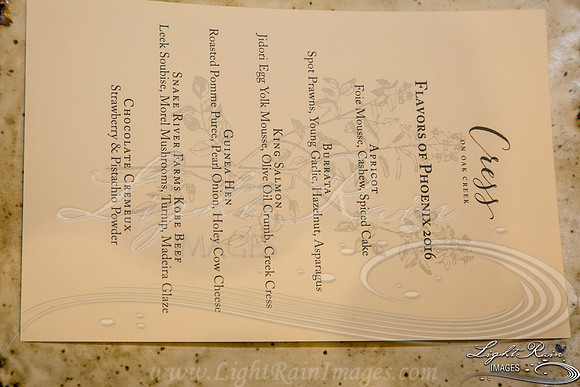 Cress
ON OAK CREEK
FLAVORS OF PHOENIX 2016
APRICOT
Foie Mousse, Cashew, Spiced Cake
BURRATA
Spot Prawns, Young Garlic, Hazelnut, Asparagus
KING SALMON
Jidori Egg Yolk Mousse, Olive Oil Crumb, Creek Cress
GUINEA HEN
Roasted Pomme Puree, Pearl Onion, Holey Cow Cheese
SNAKE RIVER FARMS KOBE BEEF
Leek Soubise, Morel Mushrooms, Turnip, Madeira Glaze
CHOCOLATE CREMEUX
Strawberry & Pistachio Powder
Light Rain
IMAGES
www.LightRainImages.com
Light Rain
IMAGES